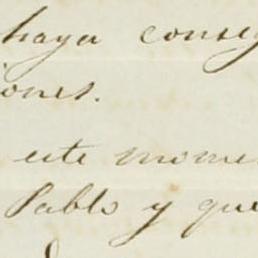 haya conseg
iones.
este mome
Pablo y que